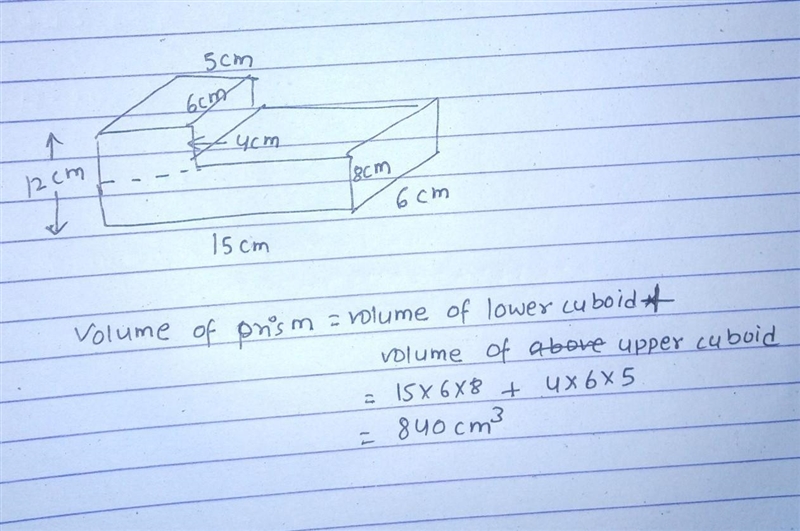 5cm
6cm
4cm
12cm
8cm
6 cm
15 cm
Volume of prism = volume of lower cuboid +
volume of above upper cuboid
= 15×6×8 + 4×6×5
= 840 cm³